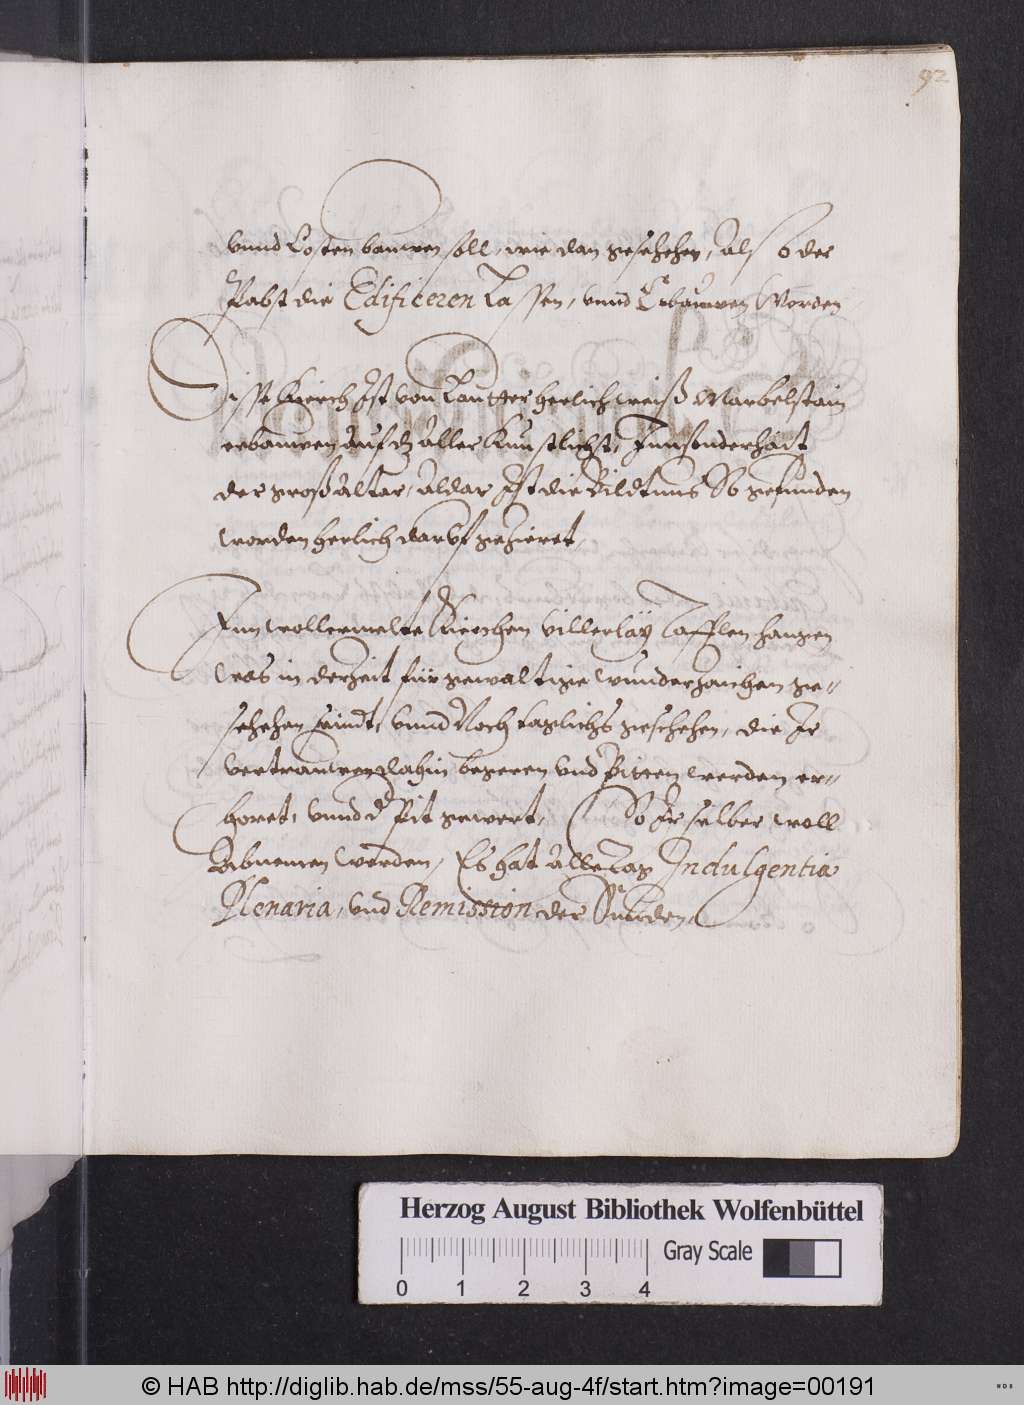 92
vnnd Costen bauwen soll, wie dan geschehen, Als so der
Pabst die Edificeren Lassen, vnnd Erbauwen Worden
Disse Kierch Ist von Lautter herlich weiß Marbelstain
erbauwen auf dz aller Kunstlichst, Innsonderhait
der groß Altar, Aldar Ist die Bildtnus So gefunden
worden herlich darvf gezieret,
Inn wollermelte Kierchen villerlay Tafflen hangen
was in derzeit für gewaltige wunderzaichen ge-
schehen seindt, vnnd Noch taglichs geschehen, die Ir
vertrauwen dahin begeren vnd Bitten werden er-
horet, vnnd d Pit gewert, So Ir selber woll
Abnemen werden, Es hat alle Tag Indulgentia
Plenaria, vnd Remission der Sünden,
Herzog August Bibliothek Wolfenbüttel
Gray Scale
0 1 2 3 4
© HAB http://diglib.hab.de/mss/55-aug-4f/start.htm?image=00191